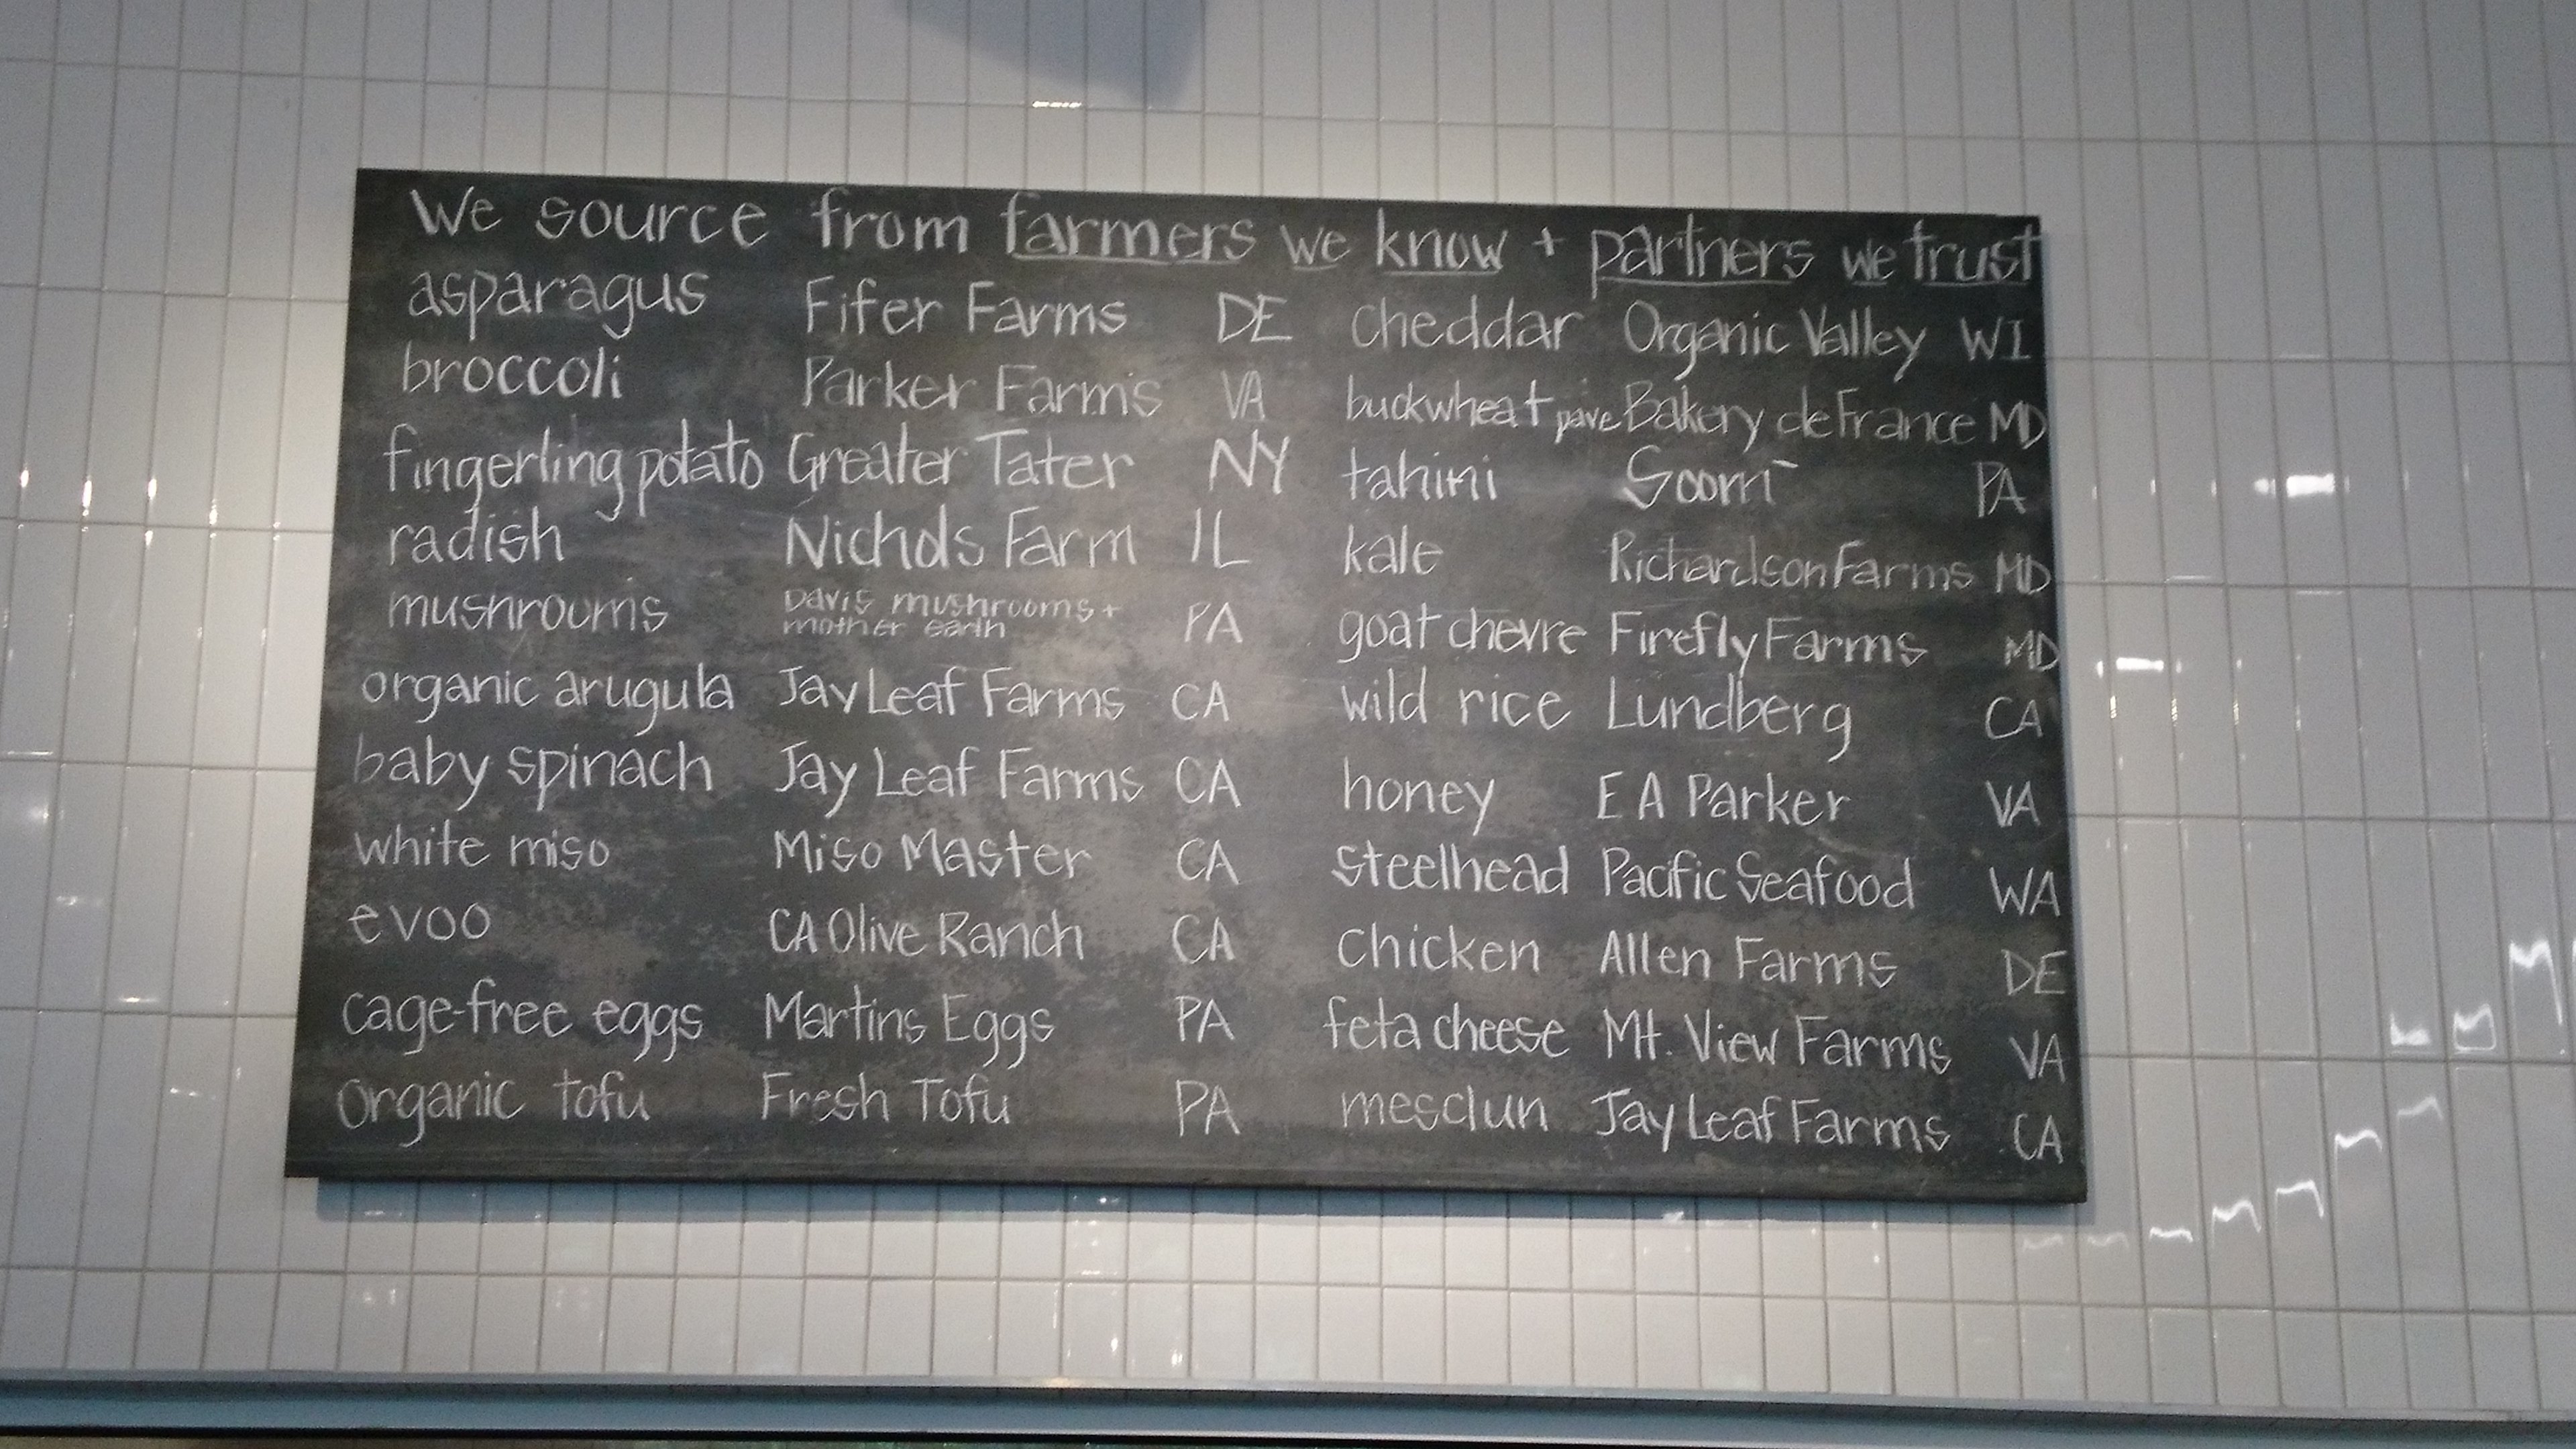 We source from farmers we know + partners we trust
asparagus Fifer Farms DE
broccoli Parker Farms VA
fingerling potato Greater Tater NY
radish Nichols Farm IL
mushrooms Davis mushrooms + mother earth PA
organic arugula Jay Leaf Farms CA
baby spinach Jay Leaf Farms CA
white miso Miso Master CA
evoo CA Olive Ranch CA
cage-free eggs Martins Eggs PA
organic tofu Fresh Tofu PA
cheddar Organic Valley WI
buckwheat pave Bakery de France MD
tahini Soom PA
kale Richardson Farms MD
goat chevre Firefly Farms MD
wild rice Lundberg CA
honey E A Parker VA
steelhead Pacific Seafood WA
chicken Allen Farms DE
feta cheese Mt. View Farms VA
mesclun Jay Leaf Farms CA